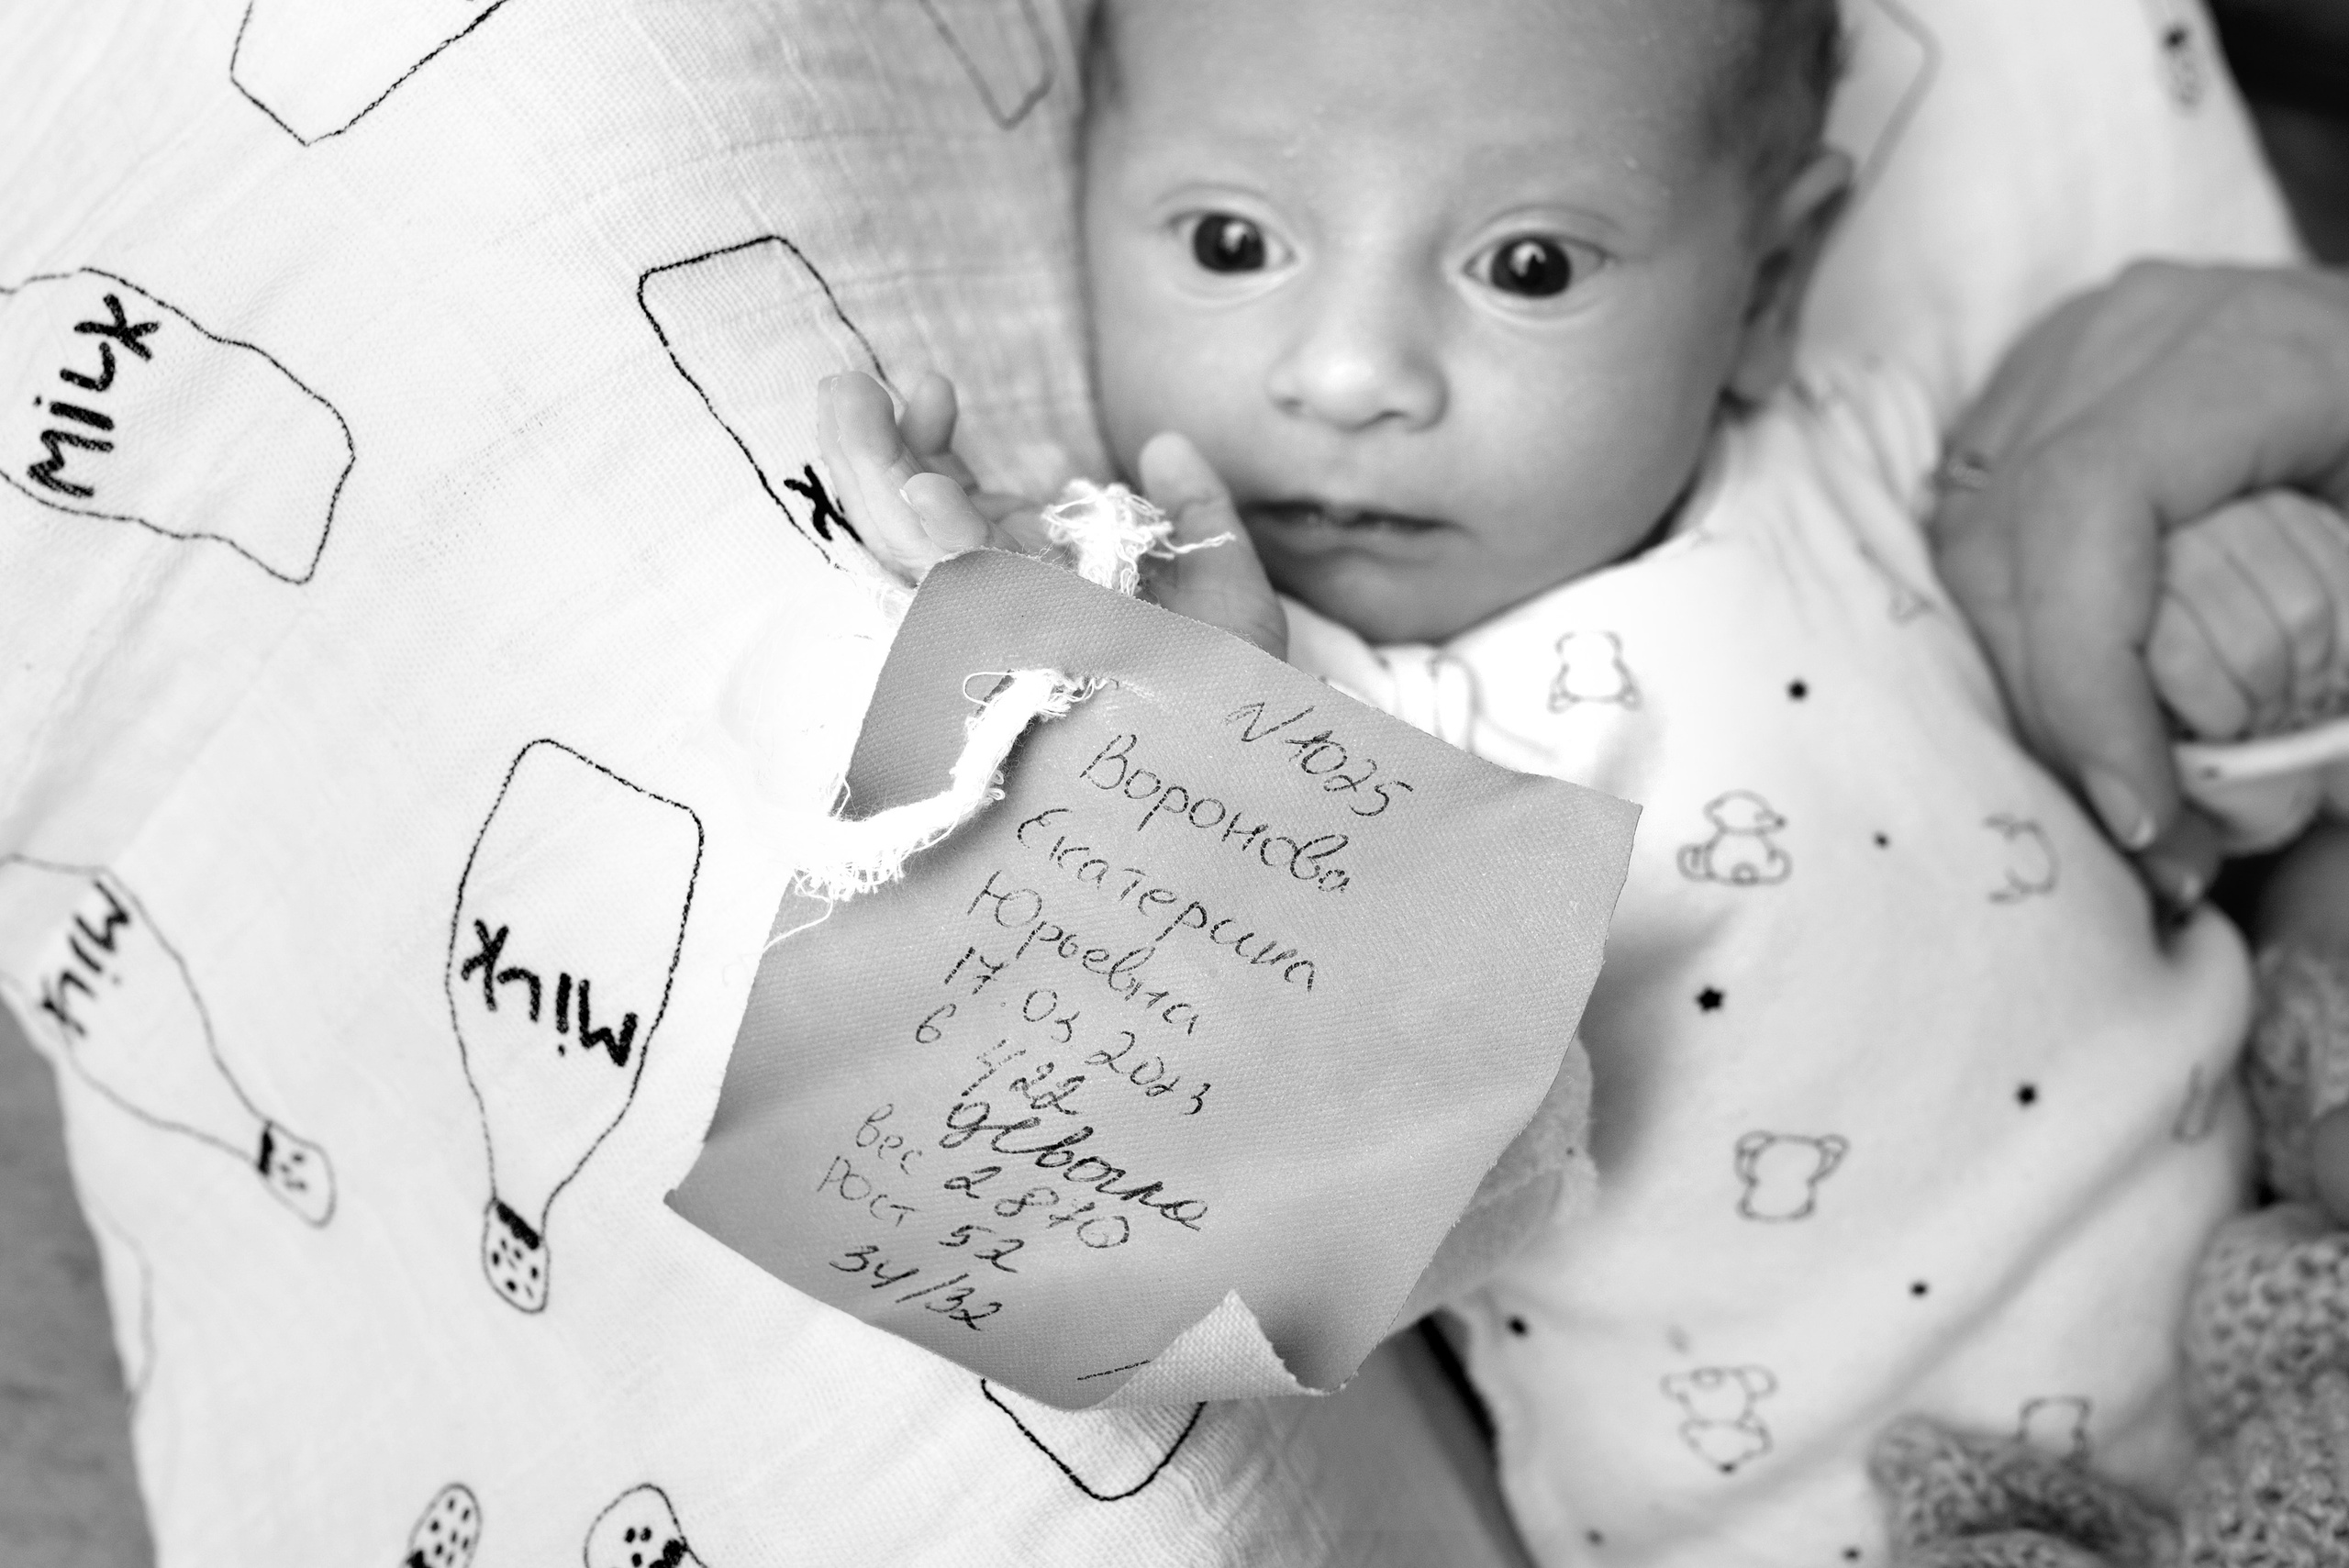 MiLK
K
MiLK
MiLK
N 1025
Воронова
Екатерина
Юрьевна
17.03.2023
в 4 22
девочка
вес 2870
рост 52
34/32